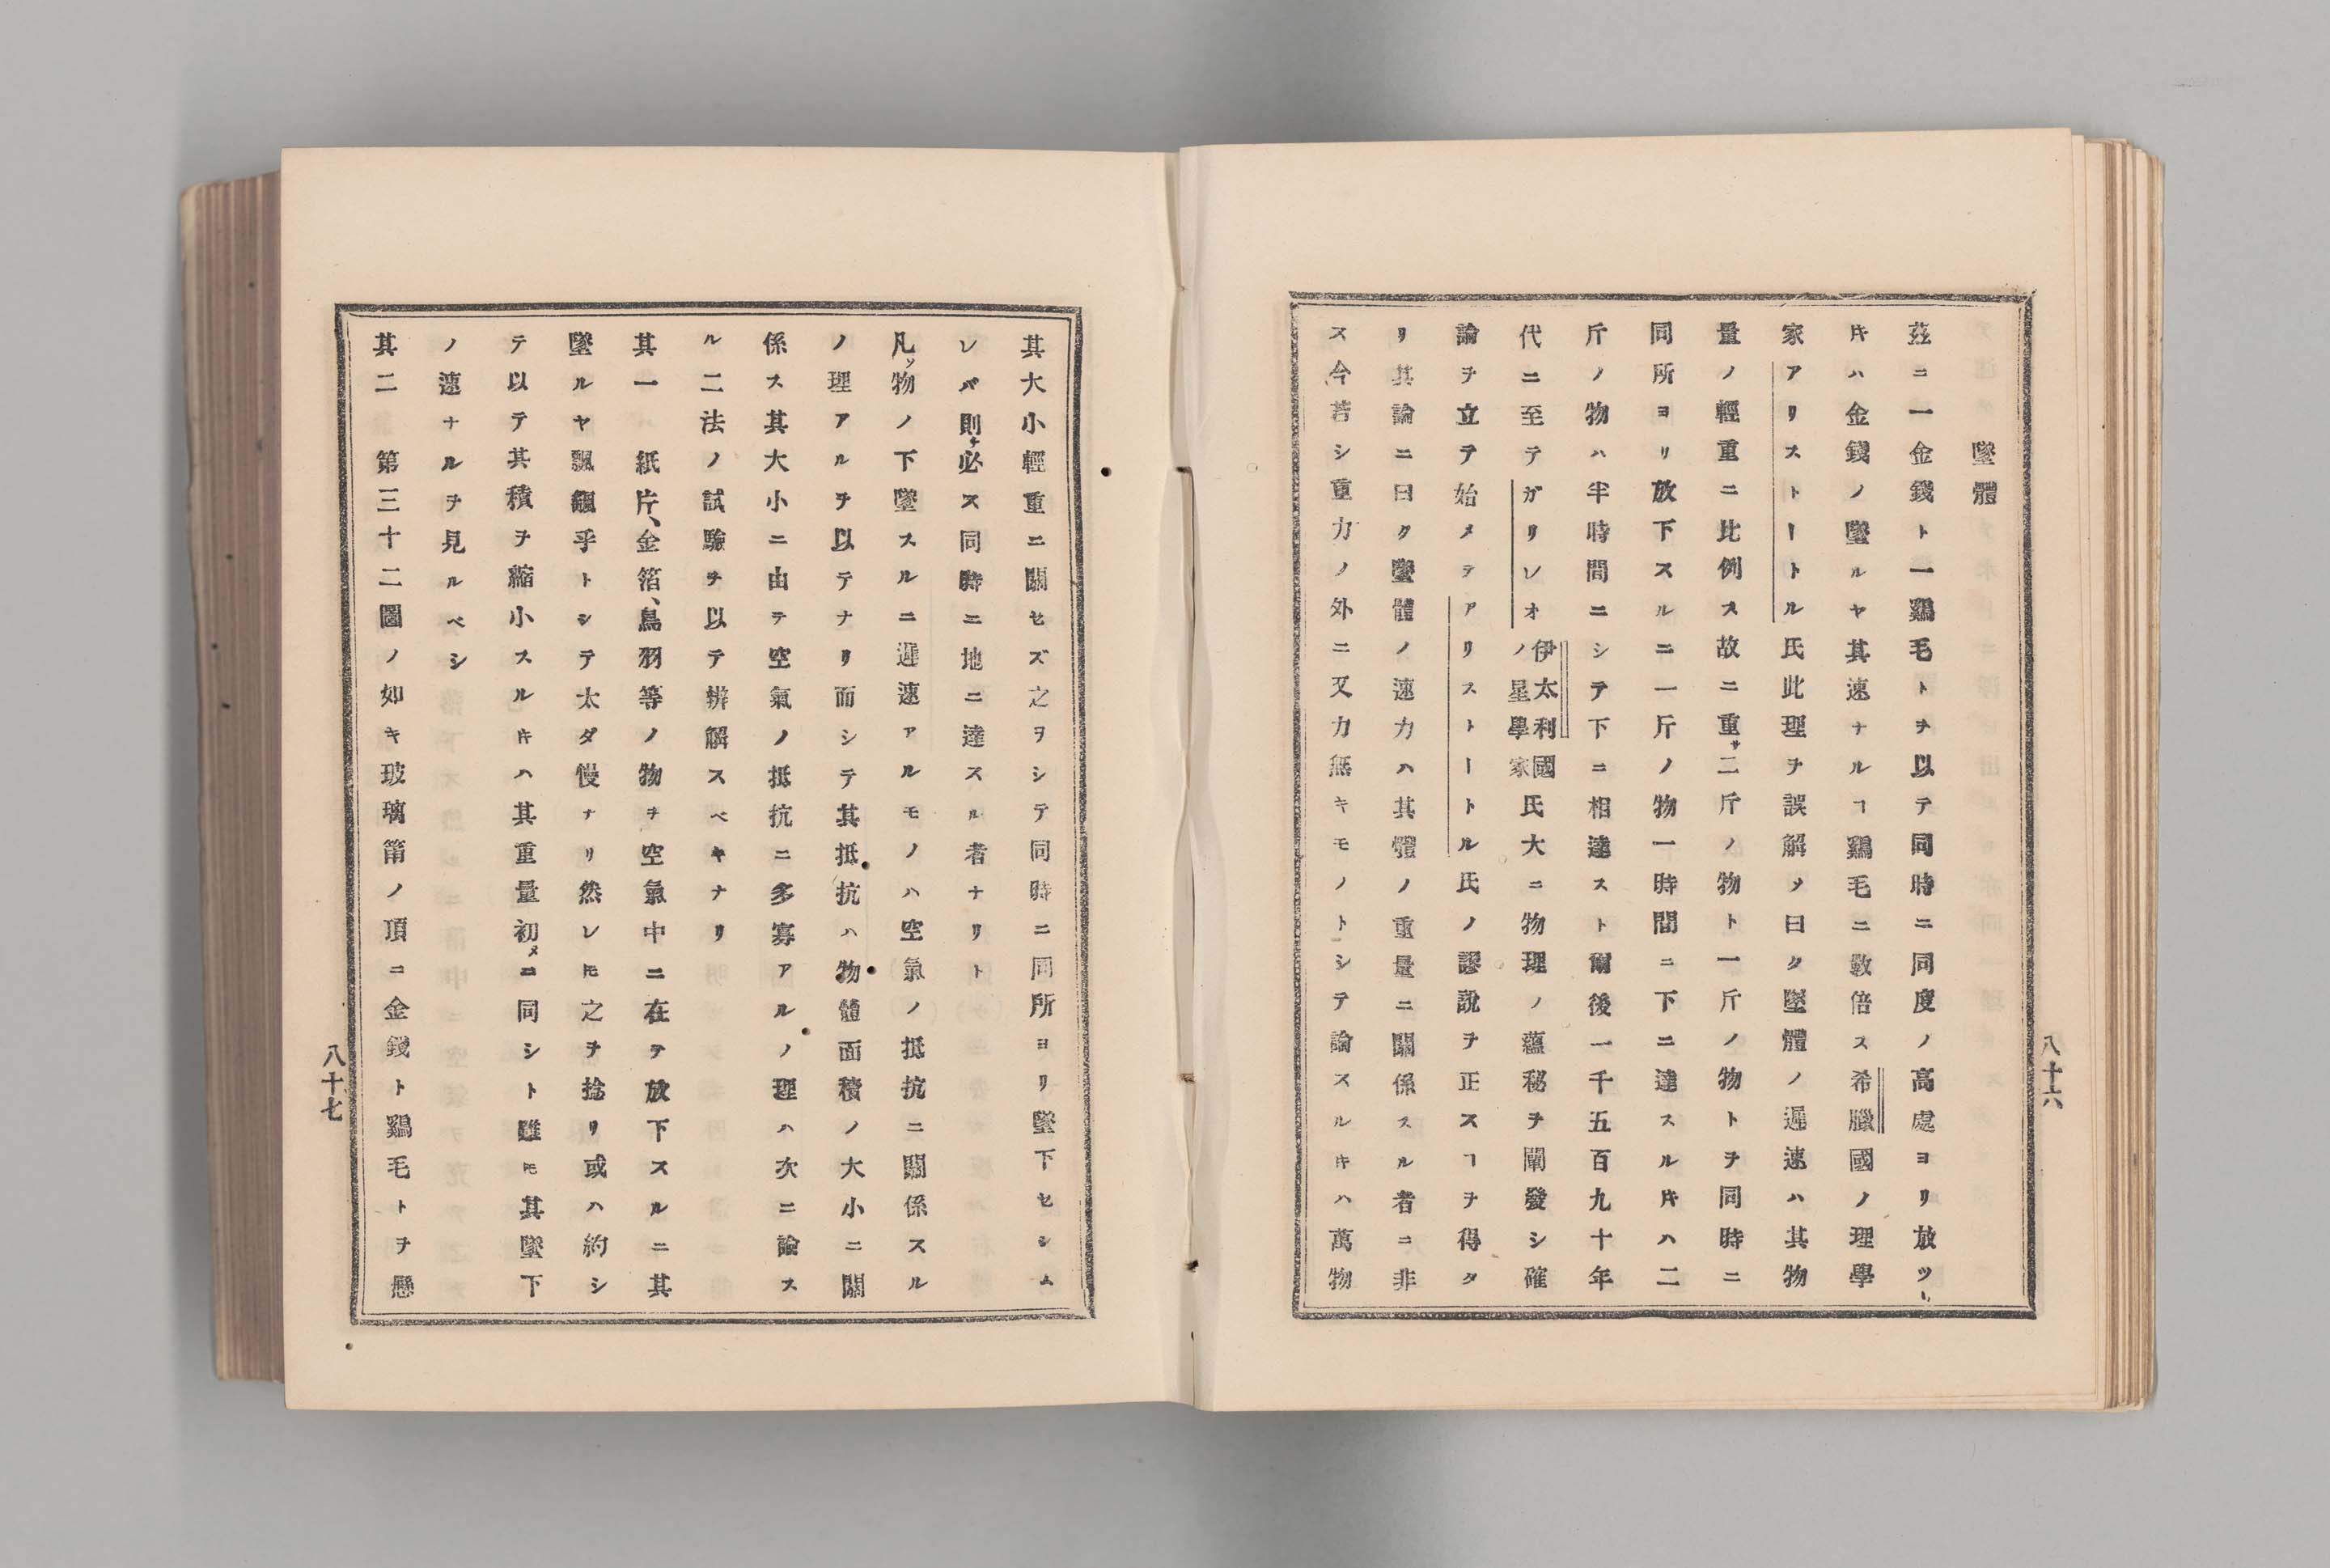 墜體
茲ニ一金錢ト一鷄毛トヲ以テ同時ニ同度ノ高處ヨリ放ツ
𪜈ハ金錢ノ墜ルヤ其速ナルヿ鷄毛ニ數倍ス希臘國ノ理學
家アリストートル氏此理ヲ誤解メ曰ク墜體ノ遲速ハ其物
量ノ輕重ニ比例ス故ニ重サ二斤ノ物ト一斤ノ物トヲ同時ニ
同所ヨリ放下スルニ一斤ノ物一時間ニ下ニ達スル𪜈ハ二
斤ノ物ハ半時間ニシテ下ニ相達スト爾後一千五百九十年
代ニ至テガリレオ伊太利國ノ星學家氏大ニ物理ノ蘊秘ヲ闡發シ確
論ヲ立テ始メテアリストートル氏ノ謬說ヲ正スヿヲ得タ
リ其論ニ曰ク墜體ノ速力ハ其體ノ重量ニ關係スル者ニ非
ス今若シ重力ノ外ニ又力無キモノトシテ論スル𪜈ハ萬物
八十六
其大小輕重ニ關セズ之ヲシテ同時ニ同所ヨリ墜下セシム
レバ則チ必ス同時ニ地ニ達スル者ナリト
凡ソ物ノ下墜スルニ遲速アルモノハ空氣ノ抵抗ニ關係スル
ノ理アルヲ以テナリ而シテ其抵抗ハ物體面積ノ大小ニ關
係ス其大小ニ由テ空氣ノ抵抗ニ多寡アルノ理ハ次ニ論ス
ル二法ノ試驗ヲ以テ辨解スベキナリ
其一　紙片、金箔、鳥羽等ノ物ヲ空氣中ニ在テ放下スルニ其
墜ルヤ飄飄乎トシテ太ダ慢ナリ然レ𪜈之ヲ捻リ或ハ約シ
テ以テ其積ヲ縮小スル𪜈ハ其重量初メニ同シト雖𪜈其墜下
ノ速ナルヲ見ルベシ
其二　第三十二圖ノ如キ玻璃筩ノ頂ニ金錢ト鷄毛トヲ懸
八十七